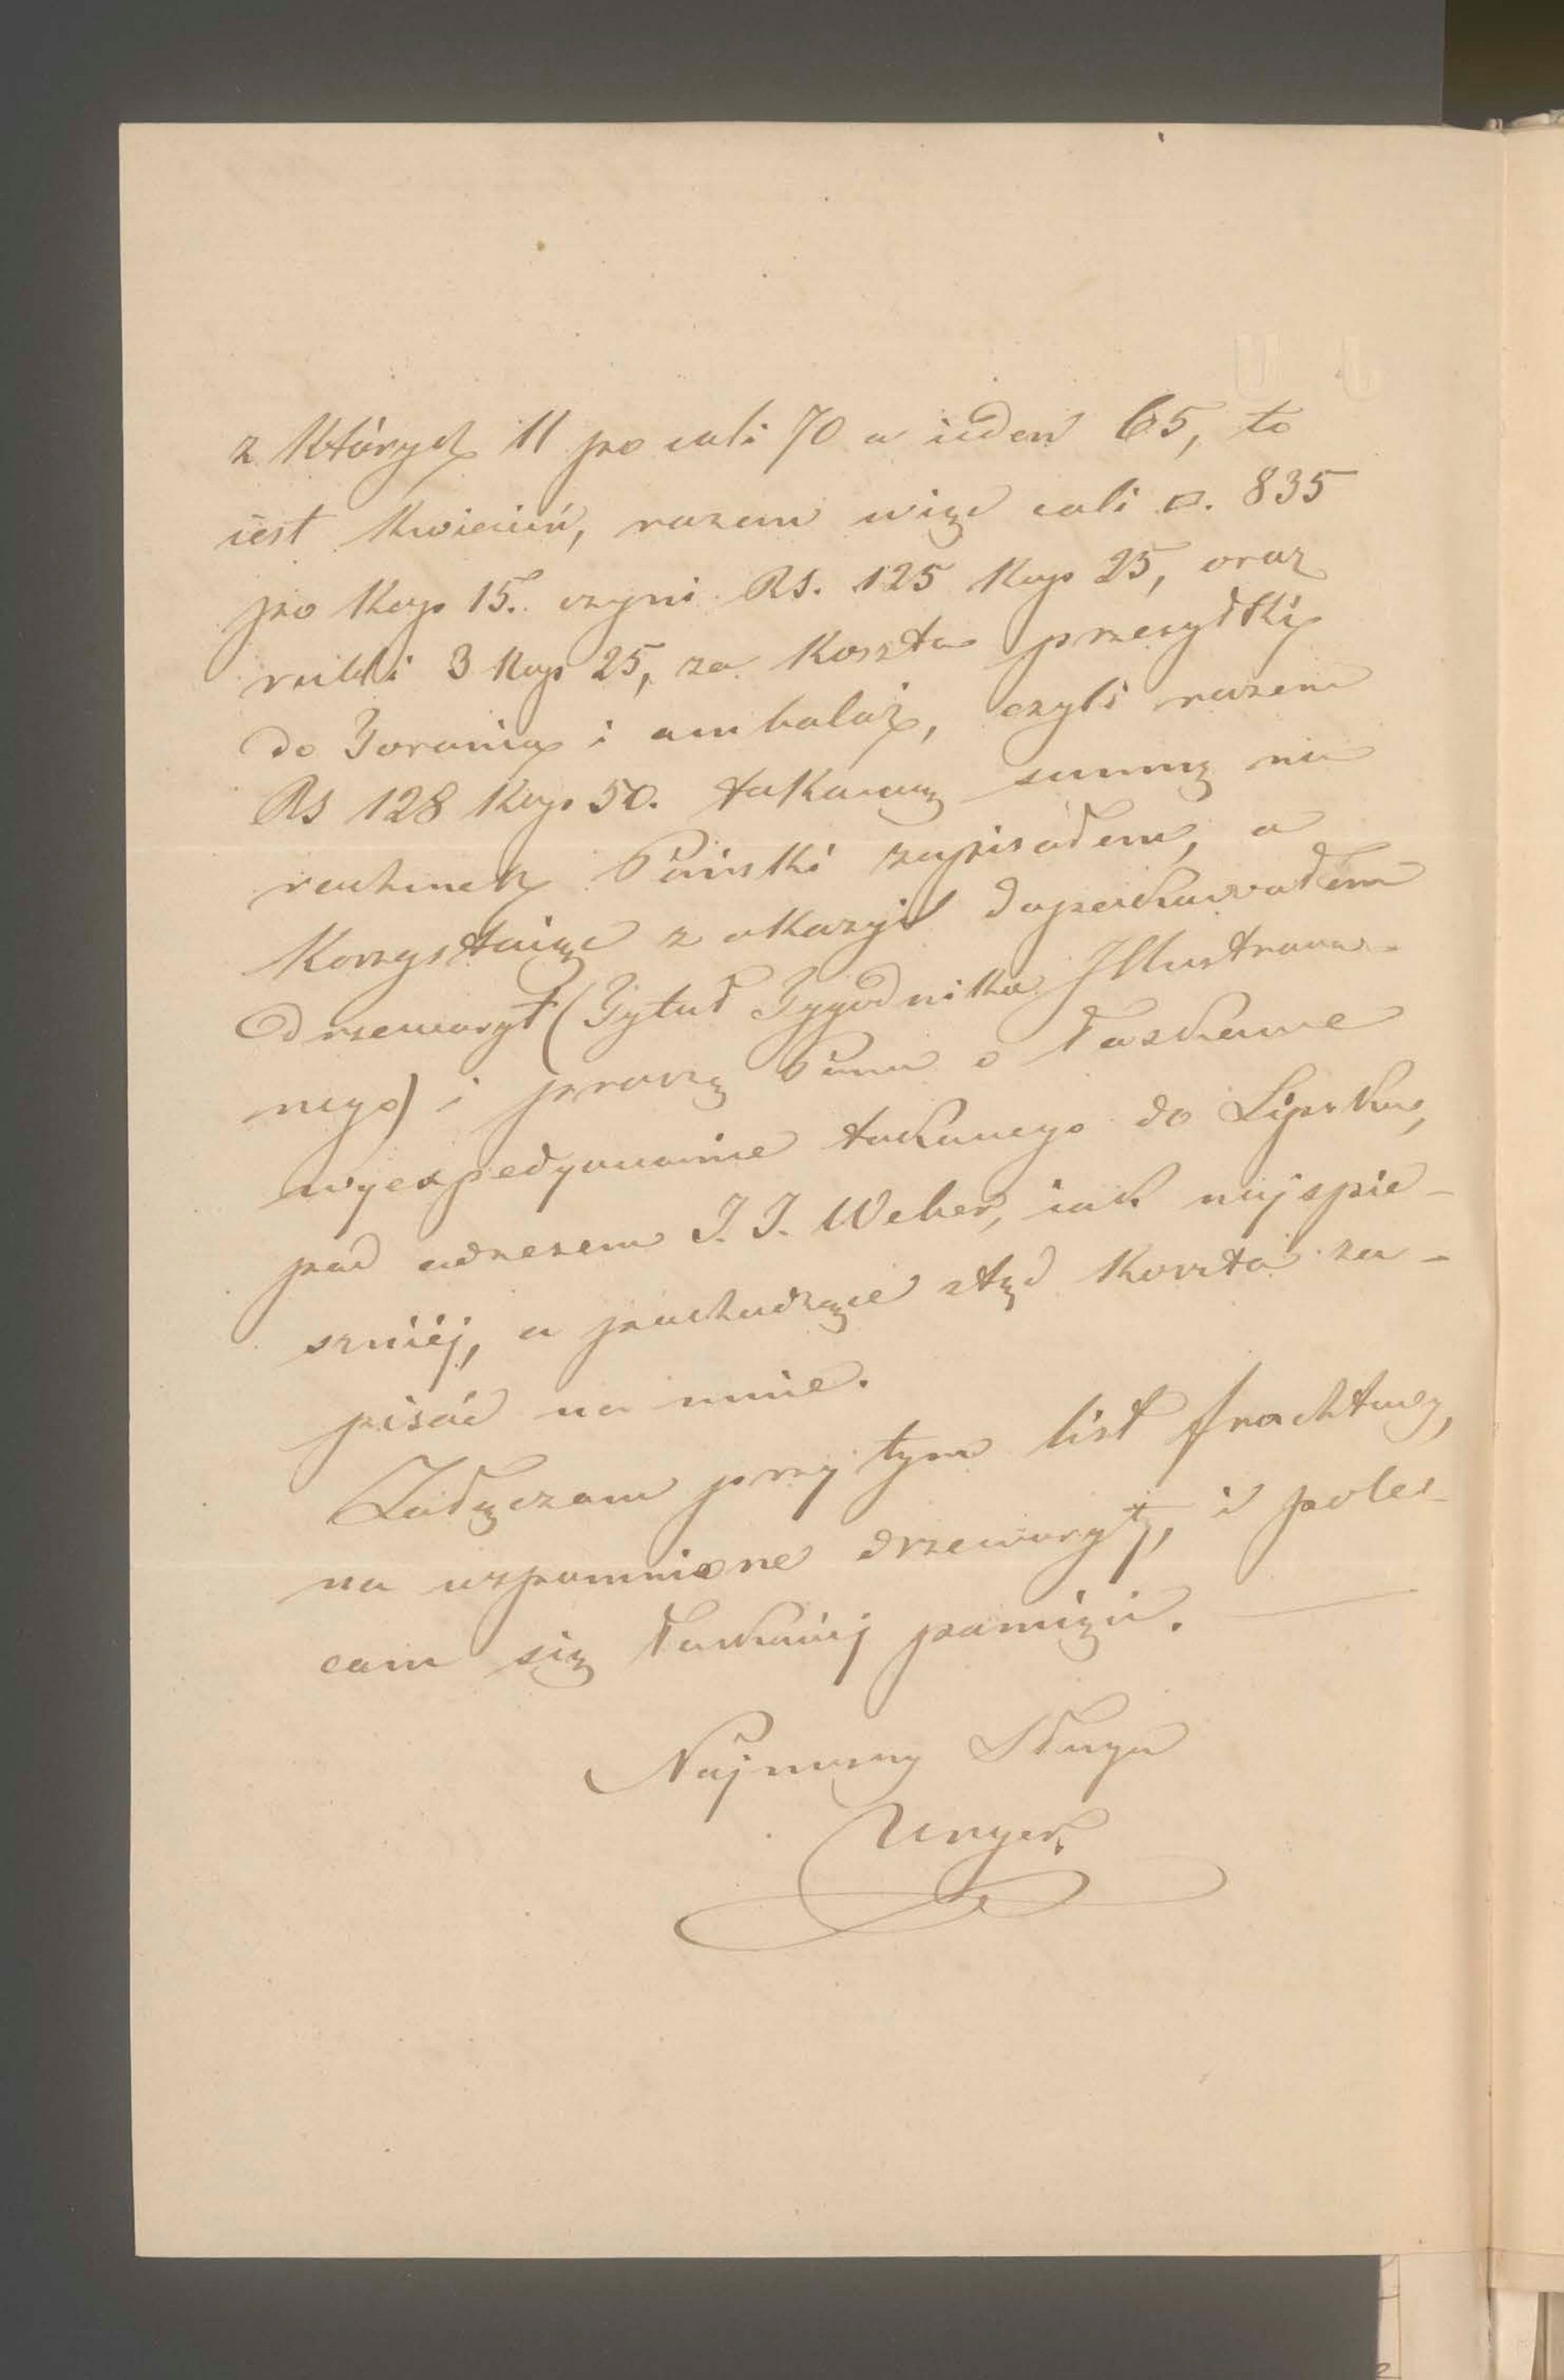 z których 11 po cali 70 a ieden 65, to
iest kwiecień, razem więc cali □. 835
po kop 15. czyni Rs. 125 kop 25, oraz
rubli 3 kop 25, za koszta przesyłki
do Torunia i ambalaż, czyli razem
Rs 128 kop 50. takową summę na
rachunek Pański zapisałem, a
korzystaiąc z okazyi dopakowałem
drzeworyt (Tytuł Tygodnika Illustrowa-
nego) i proszę Pana o łaskawe
wyexpedyowanie takowego do Lipska,
pod adresem J. J. Weber, iak najspie-
szniéj, a pochodzące ztąd koszta za-
pisać na mnie.
Załączam przy tym list frachtowy,
na wspomnione drzeworyt, i pole-
cam się łaskawéj pamięci.
Najniższy Sługa
Unger